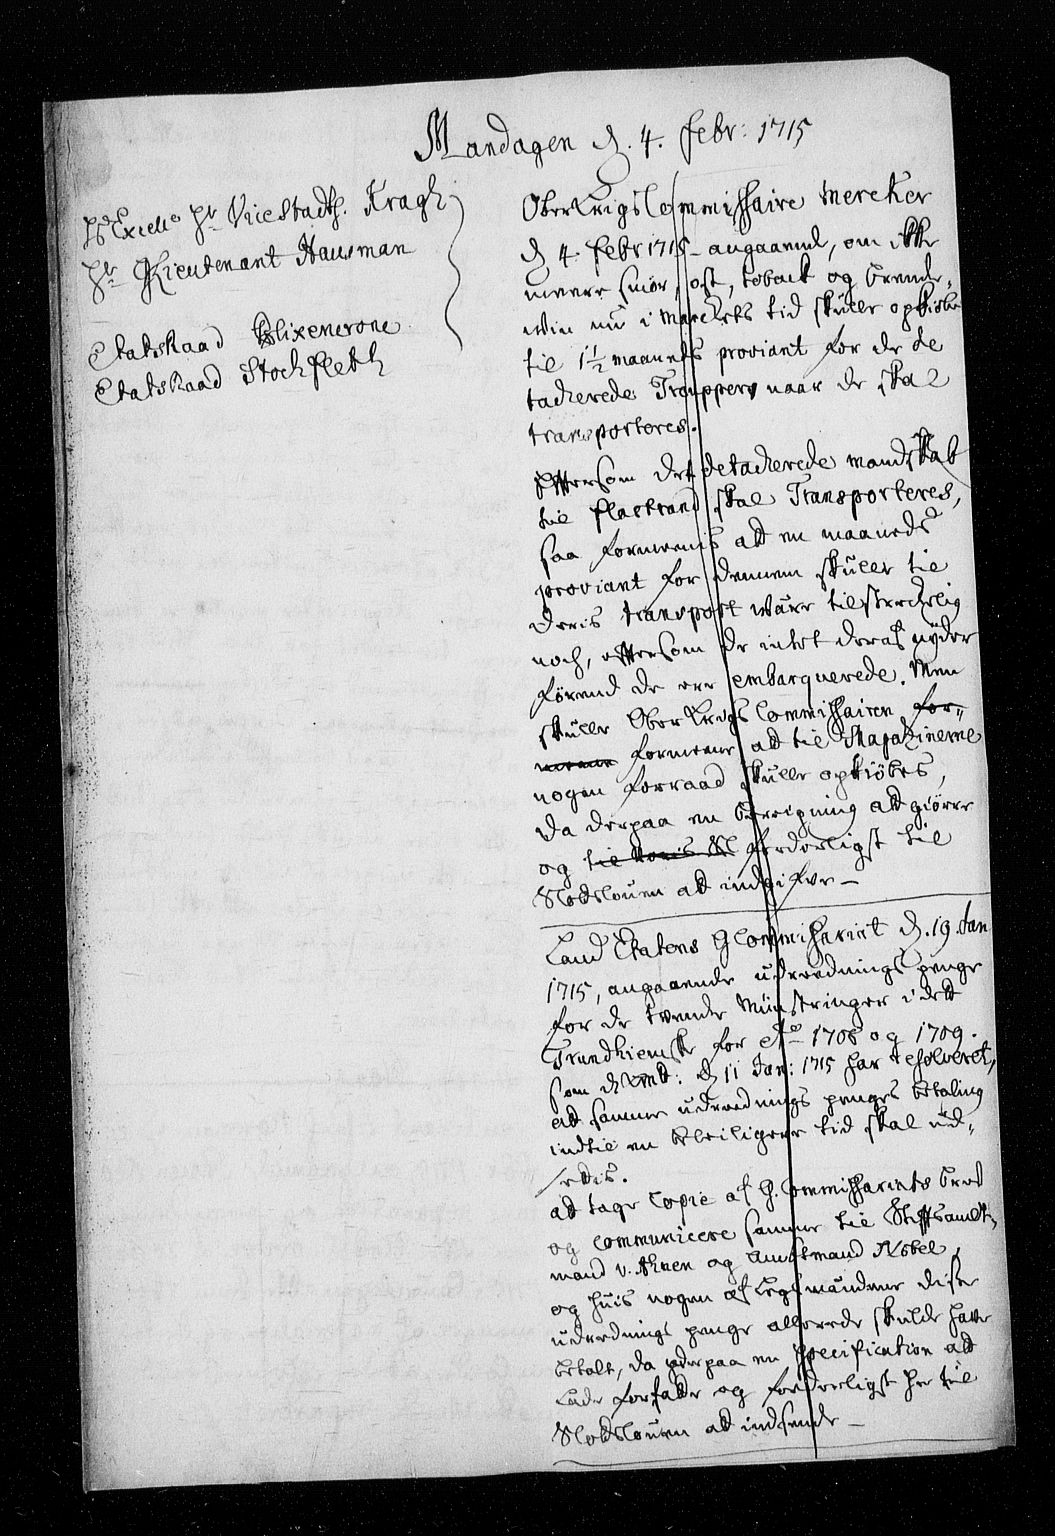 Mandagen d. 4. Febr: 1715
Hs Excell: Hr ViceStadth. Kragh
Hr GLieutenant Hausman
EtatsRaad Blixencrone
EtatsRaad Stochfleth
OberKrigsCommissaire Mercker
d 4 Febr 1715 angaaende, om ikke
meere smør, ost, toback og brende-
win nu i Marckets tid skulle opkiøbes
til 1½ maaneds proviant for de de
tacherede Troupper naar de skal
transporteres.
Eftersom det detacherede mandskab
til Flackrand skal Transporteres,
saa formeenis att en maaneds
proviant for dennem skulle til
deris transport wære tilstreckelig
noch, eftersom de intet deraf nyder
førend de ere embarquerede. Men
skulle Ober Krigs Commissairen for-
meene formeene att til Magazinerne
nogen forraad skulle opkiøbes,
da derpaa en beregning att giørre
og til deris Sl forderligst til
Slotslouen att indgifve —
Land Etatens GCommissariat d. 19 Jan
1715, angaaende udreednings penge
for de tvende Mynstringer i dett
Trundhiemske for Ao 1708 og 1709.
som d 11 Jan: 1715 har resolveret,
att samme udreednings penges betaling
indtil en beleiligere tid skal ud-
settis.
att tage Copie af G. Commissariats bref
og communicere samme til Stiftsambt-
mand v. Ahnen og Amtmand Nobel,
og huis nogen af Legsmændene disse
udrednings penge allerede skulde have
betalt, da derpaa en specification att
lade forfatte og forderligst her til
Slotslouen att indsende —